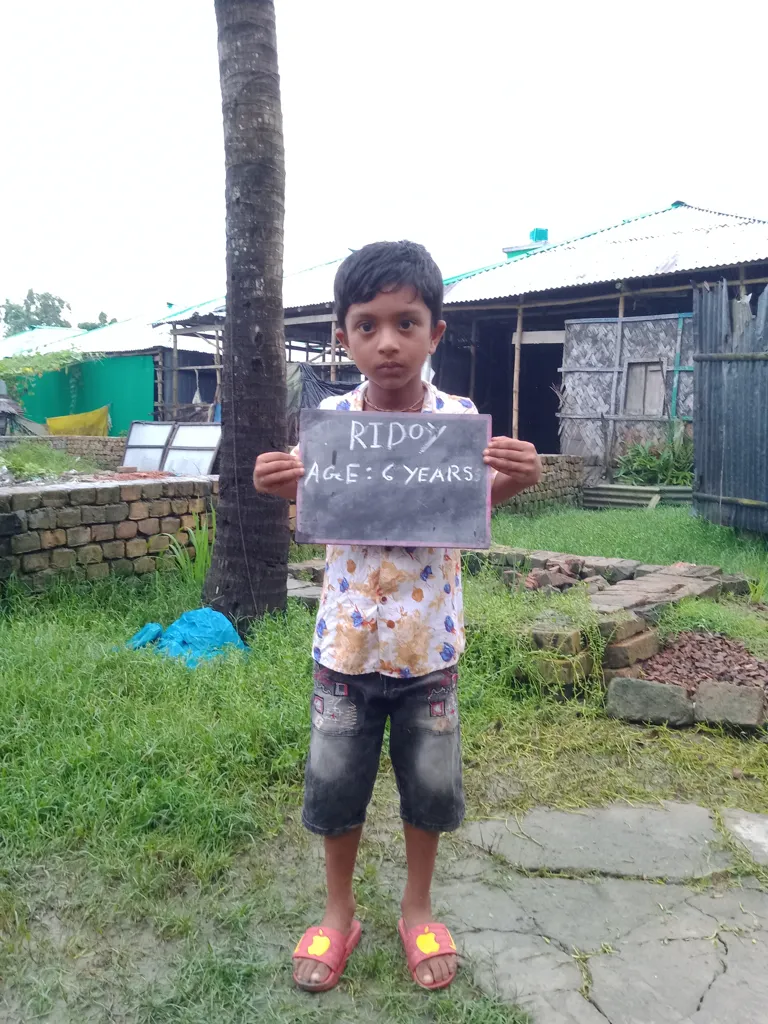 RIDOY
AGE: 6 YEARS